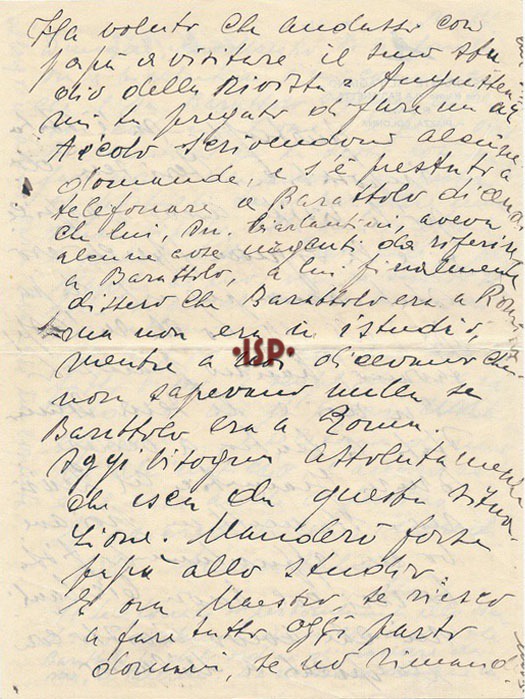 Ha voluto che andassi con
papà a visitare il suo stu
dio della Rivista e Augustea
mi ha pregato di fare un ar
ticolo scrivendomi alcune
domande, e s'è prestato a
telefonare a Barattolo dicendo
che lui, On. Ciarlantini, aveva
alcune cose urganti da riferire
a Barattolo, a lui finalmente
dissero che Barattolo era a Roma,
ma non era in istudio,
mentre a noi dicevano che
non sapevano nulla se
Barattolo era a Roma.
Oggi bisogna assolutamente
che esca da questa situa
zione. Manderò forse
papà allo studio.
E ora Maestro, se riesco
a fare tutto oggi parto
domani, se nò rimand
·JSP·